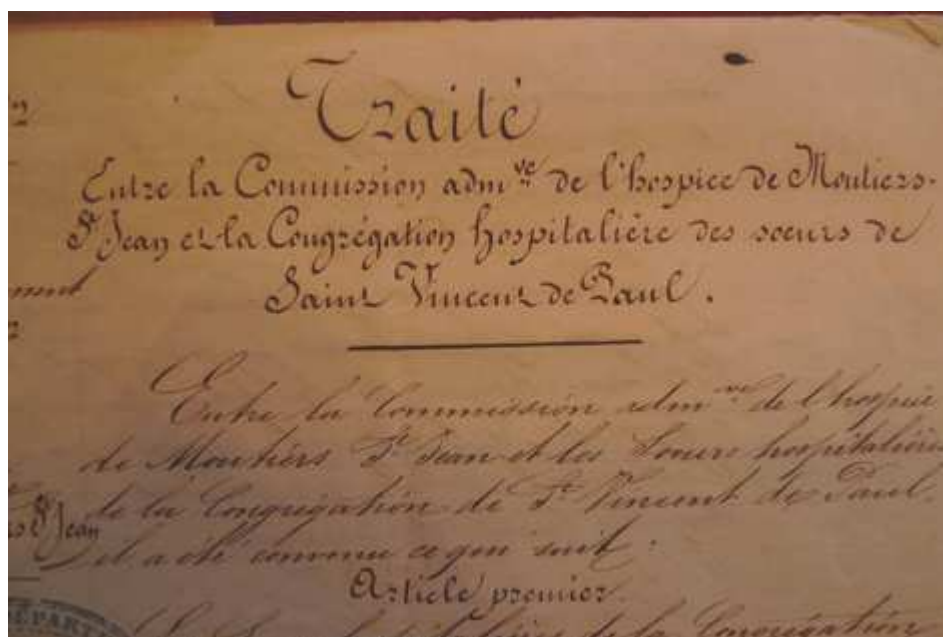 Traité
Entre la Commission adm.ve de l'hospice de Moutiers-
St Jean et la Congrégation hospitalière des soeurs de
Saint Vincent de Paul.
Entre la Commission adm.ve de l'hospice
de Moutiers St Jean et les Soeurs hospitalières
de la Congrégation de St Vincent de Paul.
il a été convenu ce qui suit :
St Jean
Article premier.
DÉPART
de la Congrégation